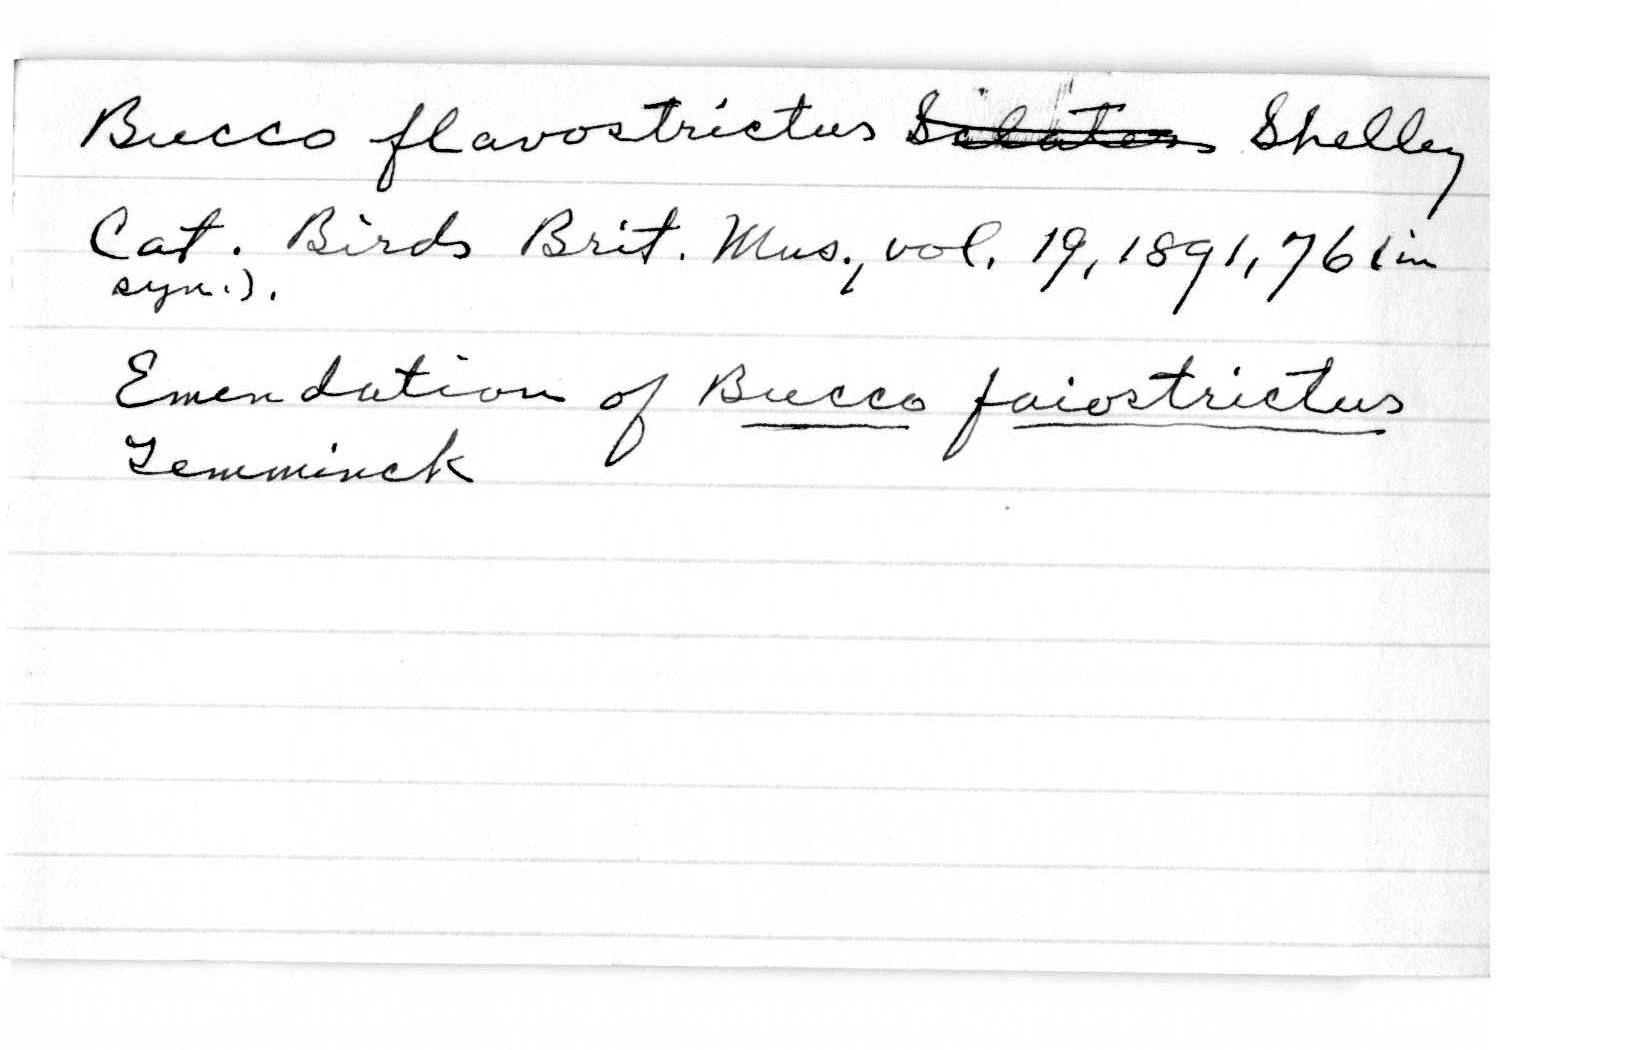 Bucco flavostrictus Sclater Shelley
Cat. Birds Brit. Mus., vol. 19, 1891, 76 (in
syn.).
Emendation of Bucco faiostrictus
Temminck